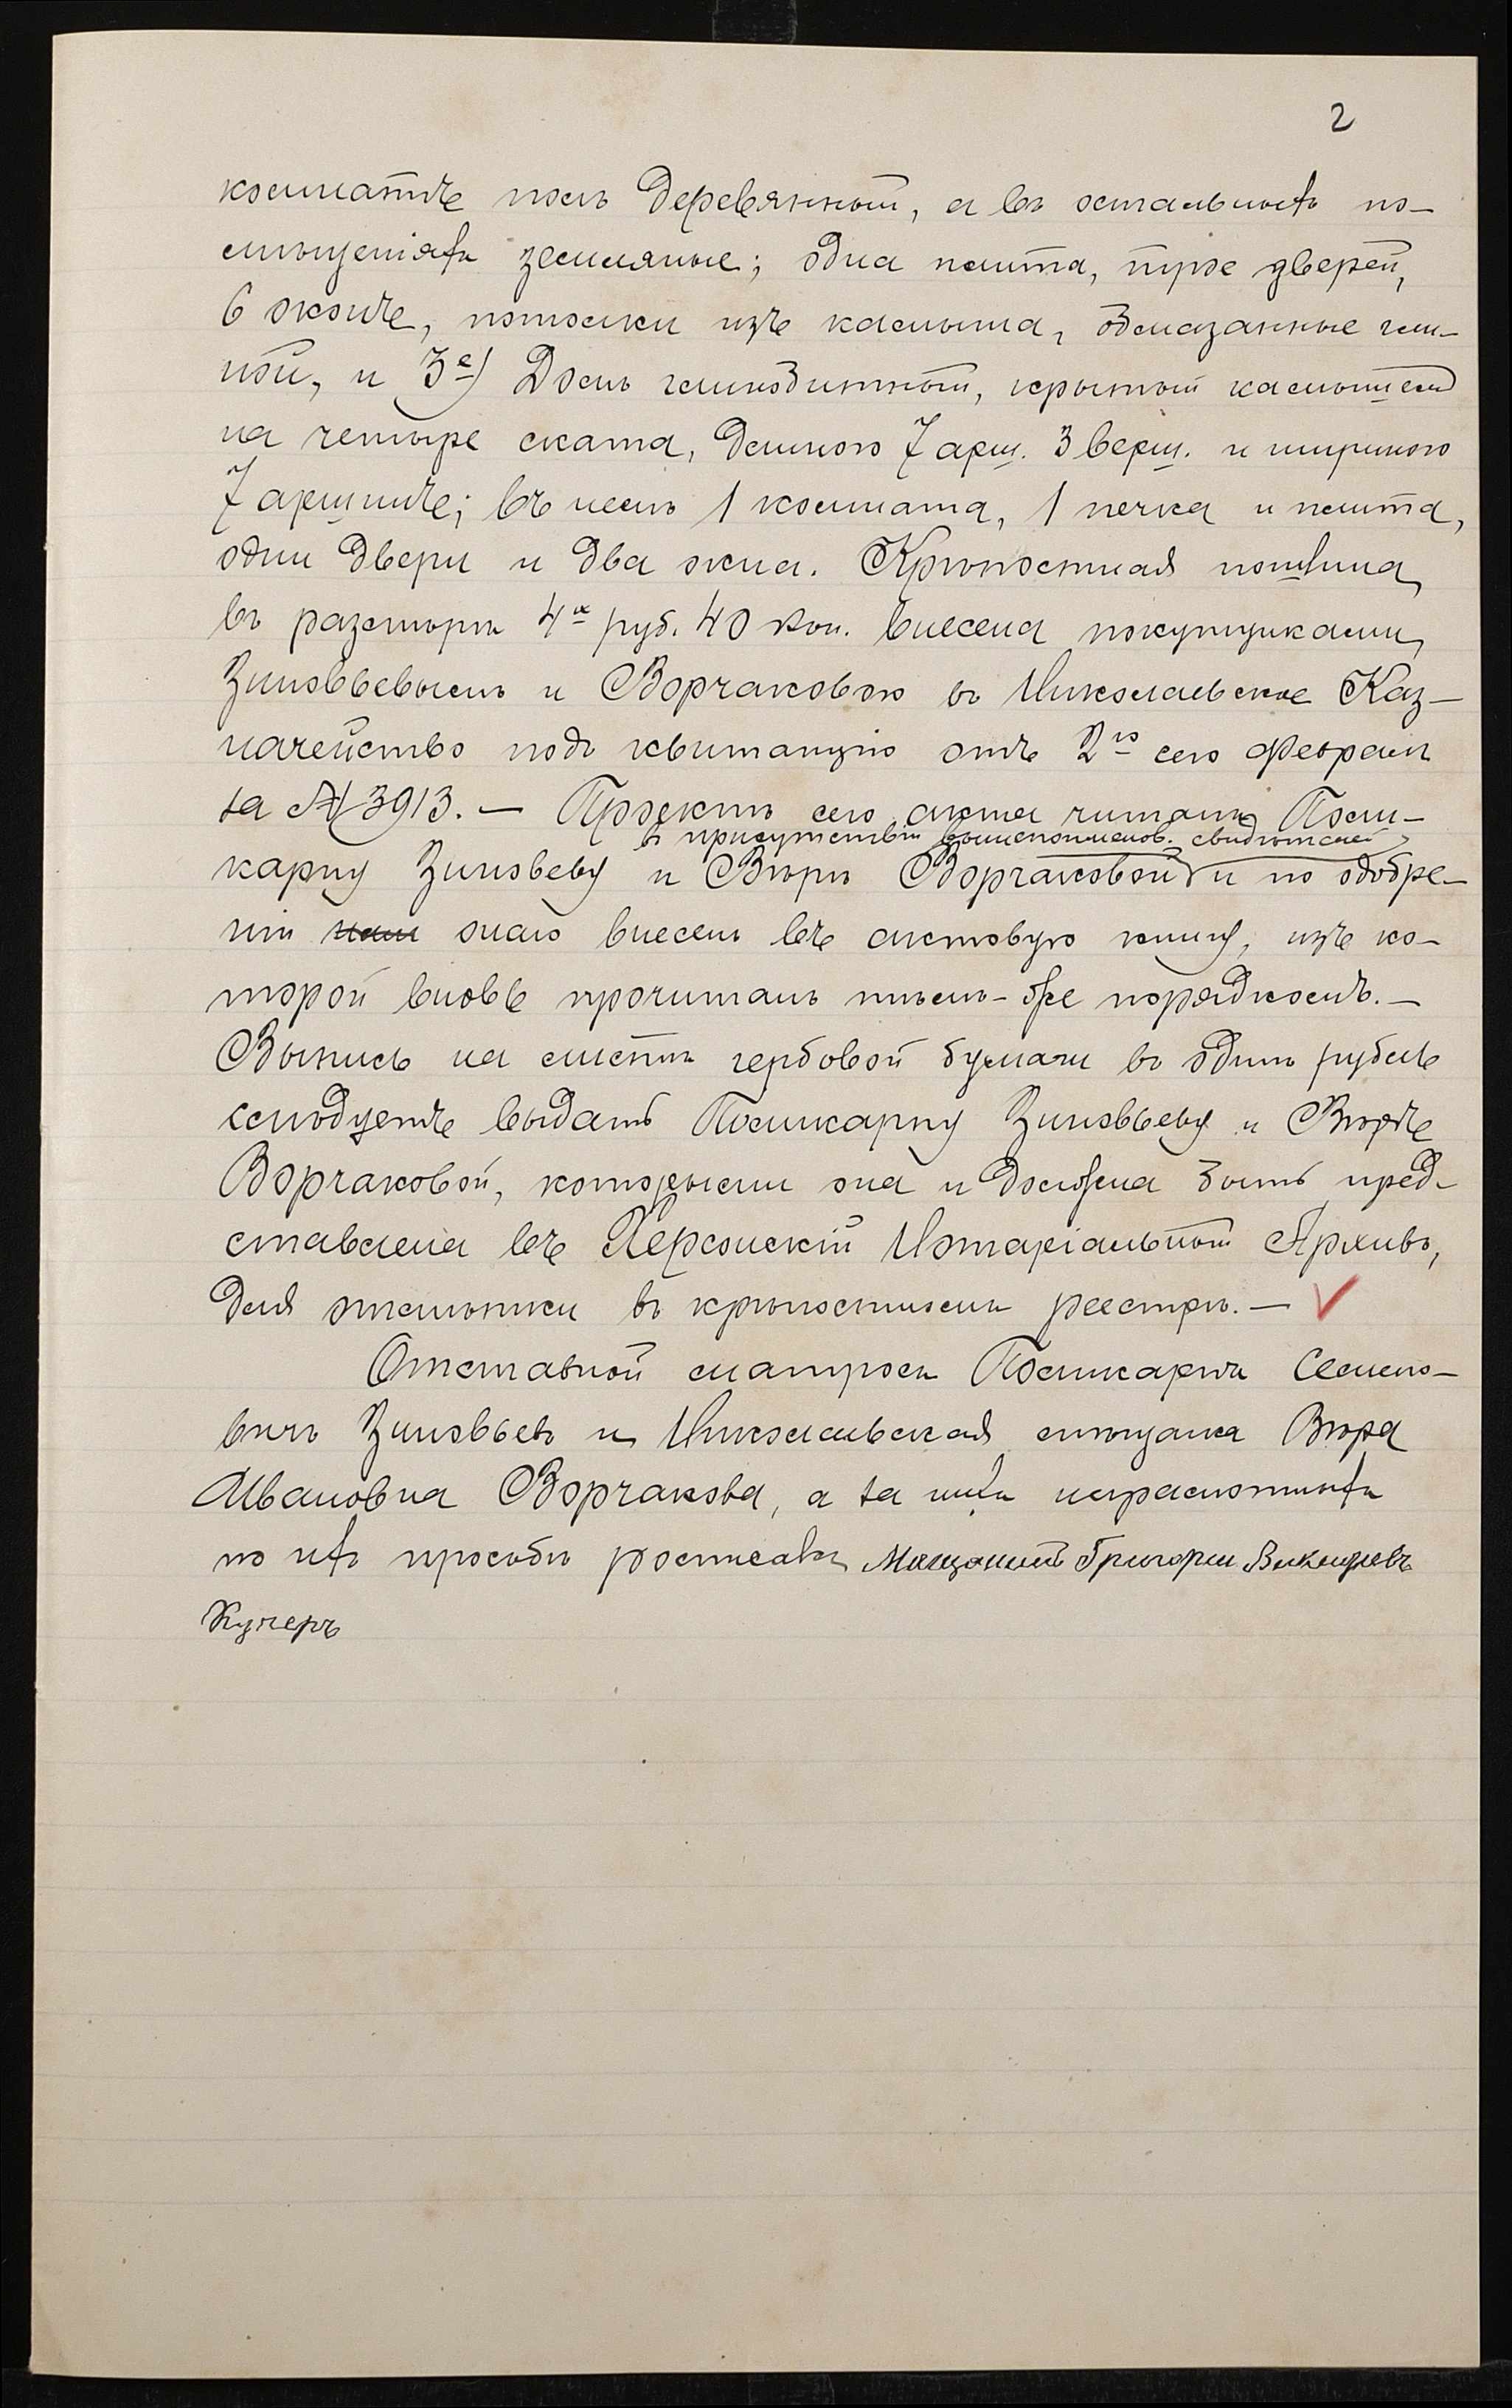 2
комнатѣ полъ деревянный, а въ остальныхъ по-
мѣщеніяхъ земляные; одна плита, трое дверей,
6 оконъ, потолки изъ камыша, обмазанные гли-
ной, и 3е) Домъ глинобитный, крытый камышем
на четыре ската, длиною 7 арш. 3 верш. и шириною
7 аршинъ; въ немъ 1 комната, 1 печка и плита,
одни двери и два окна. Крѣпостная пошлина
въ размѣрѣ 4х руб. 40 коп. внесена покупщиками
Зиновьевымъ и Ворчаковою въ Николаевское Каз-
начейство подъ квитанцію отъ 2го сего Февраля
за № 3913. — Проектъ сего акта читанъ Поли-
въ присутствіи вышепоименов. свидѣтелей
карпу Зиновьеву и Вѣрѣ Ворчаковой и по одобре-
ніи онаго внесенъ въ актовую книгу, изъ ко-
торой вновь прочитанъ тѣмъ-же порядкомъ. —
Выпись на листѣ гербовой бумаги въ одинъ рубль
слѣдуетъ выдать Поликарпу Зиновьеву и Вѣрѣ
Ворчаковой, которыми она и должна быть пред-
ставлена въ Херсонскій Нотаріальный Архивъ,
для отмѣтки въ крѣпостномъ реестрѣ. —
Отставной матросъ Поликарпъ Семено-
вичъ Зиновьевъ и Николаевская мѣщанка Вѣра
Ивановна Ворчакова, а за нихъ неграмотныхъ
по ихъ просьбѣ росписался Мещанинъ Григорий
Кучеръ